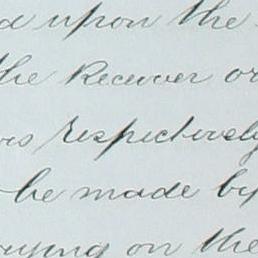 d upon the
the Receiver or
ors respectively
be made by
rrying on the